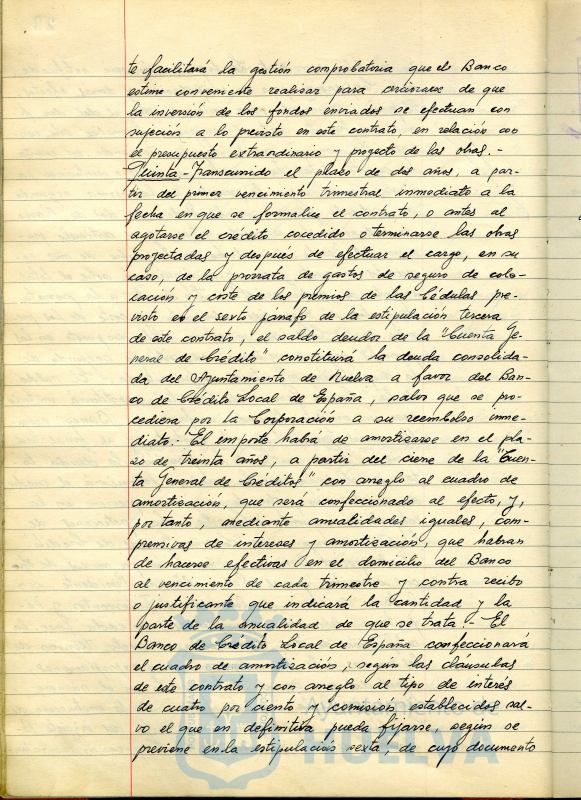 te facilitará la gestión comprobatoria que el Banco
estime conveniente realizar para cerciorarse de que
la inversión de los fondos enviados se efectuan con
sujeción a lo previsto en este contrato, en relación con
el presupuesto extraordinario y proyecto de las obras.-
Quinta - Transcurrido el plazo de dos años, a par-
tir del primer vencimiento trimestral inmediato a la
fecha en que se formalice el contrato, o antes al
agotarse el crédito cocedido o terminarse las obras
proyectadas y después de efectuar el cargo, en su
caso, de la prorrata de gastos de seguro de colo-
cación y coste de los premios de las Cédulas pre-
visto en el sexto párrafo de la estipulación tercera
de este contrato, el saldo deudor de la "Cuenta Ge-
neral de Crédito" constituirá la deuda consolida-
da del Ayuntamiento de Huelva a favor del Ban-
co de Crédito Local de España, salvo que se pro-
cediera por la Corporación a su reembolso inme-
diato.- El importe habrá de amortizarse en el pla-
zo de treinta años, a partir del cierre de la "Cuen-
ta General de Créditos" con arreglo al cuadro de
amortización, que será confeccionado al efecto, y,
por tanto, mediante anualidades iguales, com-
prensivas de intereses y amortización, que habran
de hacerse efectivas en el domicilio del Banco
al vencimiento de cada trimestre y contra recibo
o justificante que indicará la cantidad y la
parte de la anualidad de que se trata.- El
Banco de Crédito Local de España confeccionará
el cuadro de amortización, según las cláusulas
de este contrato y con arreglo al tipo de interés
de cuatro por ciento y comisión establecidos sal-
vo el que en definitiva pueda fijarse, según se
previene en la estipulación sexta, de cuyo documento
HUELVA